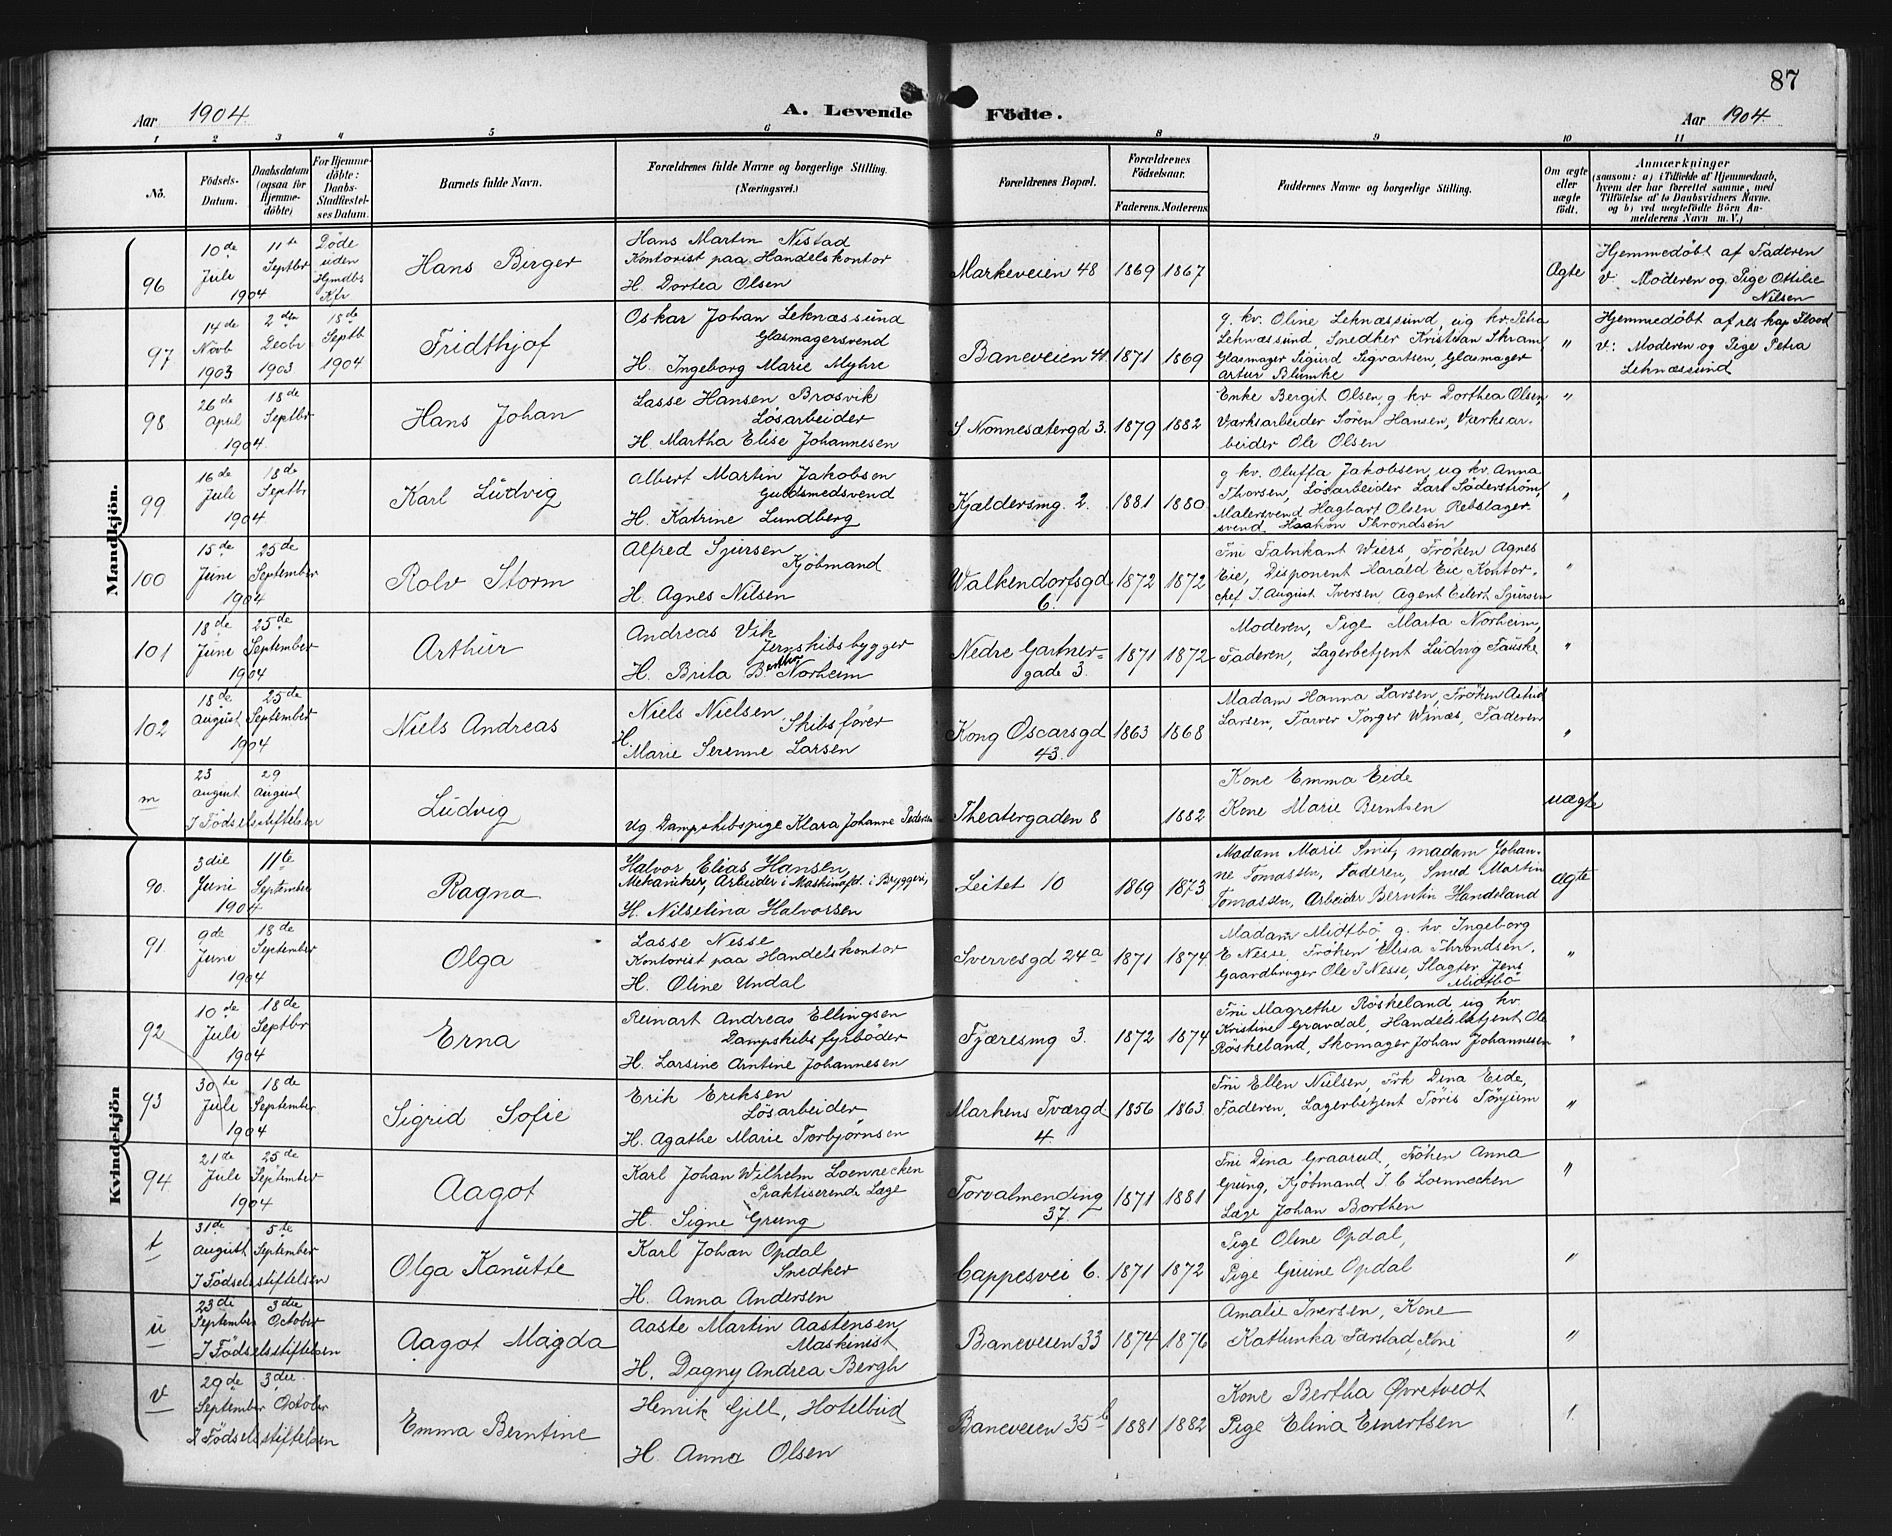 87
Aar 1904
A. Levende Födte.
Aar 1904
1 2 3 4 5 6 8 9 10 11
No.
Födsels-Datum.
Daabsdatum (ogsaa for Hjemme-döbte)
For Hjemme-döbte: Daabs-Stadfæstel-ses Datum.
Barnets fulde Navn.
Forældrenes fulde Navne og borgerlige Stilling. (Næringsvei.)
Forældrenes Bopæl.
Forældrenes Födselsaar.
Faderens. Moderens
Faddernes Navne og borgerlige Stilling.
Om ægte eller uægte født.
Anmærkninger
(saasom: a) i Tilfælde af Hjemmedaab, hvem der har forrettet samme, med Tilföielse af to Daabsvidners Navne. og b) ved uægtefödte Börn An-melderens Navn m. V.)
Mandkjön.
96
10de Juli 1904
11te Septbr
Döde uden Hjmdbs Kfr
Hans Birger
Hans Martin Nistad
Kontorist paa Handelskontor
H. Dortea Olsen
Markeveien 48
1869 1867
Ægte
Hjemmedöbt af Faderen
v. Moderen og Pige Ottilie
Nilsen
97
14de Novb 1903
2den Decbr 1903
18de Septb 1904
Fridthjof
Oskar Johan Leknæssund
Glasmagersvend
H. Ingeborg Marie Myhre
Baneveien 41
1871 1869
g. kv. Oline Leknæssund, ug kv. Petra
Leknæssund, Snedker Kristian Skram,
Glasmager Sigurd Sigvartsen, Glasmager
Artur Blumke
"
Hjemmedöbt af res kap Flood
v: Moderen og Pige Petra
Leknæssund
98
26de April 1904
18de Septbr
Hans Johan
Lasse Hansen Brosvik
Løsarbeider
H. Martha Elise Johannesen
S Nonnesætergd 3.
1879 1882
Enke Bergit Olsen, g kv Dorthea Olsen,
Værksarbeider Sören Hansen, Værksar-
beider Ole Olsen
"
99
16de Juli 1904
18de Septbr
Karl Ludvig
Albert Martin Jakobsen
Guldsmedsvend
H. Katrine Lundberg
Kjældersmg. 2.
1881 1880
g kv. Oluffa Jakobsen, ug kv. Anna
Thorsen, Løsarbeider Lars Söderström,
Malersvend Hagbart Olsen Rebslager
svend Haakon Throndsen
"
100
15de Juni 1904
25de September
Rolv Storm
Alfred Sjursen
Kjöbmand
H. Agnes Nilsen
Walkendorfsgd
6.
1872 1872
Fru Fabrikant Wiers, Fröken Agnes
Eie, Disponent Harald Eie Kontor-
chef J. August Iversen, Agent Eilert Sjursen
"
101
18de Juni 1904
25de September
Arthur
Andreas Vik
Jernskibsbygger
H. Brita Bertha Norheim
Nedre Gartner-
gade 3.
1871 1872
Moderen, Pige Marta Norheim,
Faderen, Lagerbetjent Ludvig Fauske
"
102
18de August 1904
25de September
Niels Andreas
Niels Nielsen
Skibsfører
H. Marie Serenne Larsen
Kong Oscarsgd
43.
1863 1868
Madam Hanna Larsen, Fröken Astrid
Larsen, Farver Torger Winæs, Faderen
"
m
23 August
29 August
I Födselsstiftelsen
Ludvig
Ug. Dampskibspige Klara Johanne Pedersen
Theatergaden 8
1882
Kone Emma Eide
Kone Marie Berntsen
uægte
Kvindekjön
90.
3die Juni 1904
11te September
Ragna
Halvor Elias Hansen,
Mekaniker, Arbeider i Maskinafd. i Bryggeri,
H. Nilsetina Halvorsen
Leitet 10
1869 1873
Madam Marie Smit, madam Johan-
ne Tomassen, Faderen, Smed Martin
Tomassen, Arbeider Berntin Handeland
Ægte
91
9de Juni 1904
18de September
Olga
Lasse Nesse
Kontorist paa Handelskontor
H. Oline Undal
Sverresgd 24a
1871 1874
Madam Midtbö g. kv. Ingeborg
E Nesse Fröken Elisa Throndsen,
Gaardbruger Ole J Nesse, Slagter Jens
Midtbö
"
92
10de Juli 1904
18de Septbr
Erna
Reinart Andreas Ellingsen
Dampskibsfyrböder
H. Larsine Arntine Johannesen
Fjæresmg 3.
1872 1874
Fru Magrethe Röskeland, ug kv.
Kristine Gravdal, Handelsbetjent Ole
Röskeland, Skomager Johan Johannesen
"
93
30te Juli 1904
18de September
Sigrid Sofie
Erik Eriksen
Løsarbeider
H. Agathe Marie Torbjørnsen
Markens Tværgd
4.
1856 1863
Fru Ellen Nielsen, Frk Dina Eide,
Faderen, Lagerbetjent Töris Tönjum
"
94
21de Juli 1904
25de September
Aagot
Karl Johan Wilhelm Loennecken
Praktiserende Læge
H. Signe Grung
Torvalmending
37.
1871 1881
Fru Dina Graarud, Fröken Anna
Grung, Kjöbmand J. C Loennecken
Læge Johan Borthen
"
t
31de August
5te September
I Födselsstiftelsen
Olga Kanutte
Karl Johan Opdal
Snedker
H. Anna Andersen
Cappesvei 6.
1871 1872
Pige Oline Opdal,
Pige Gurine Opdal
"
u
23de September
3die October
I Födselsstiftelsen
Aagot Magda
Aaste Martin Aastensen
Maskinist
H. Dagny Andrea Bergh
Baneveien 33
1874 1876
Amalie Iversen, Kone
Kathinka Farstad, Kone
"
v
29de September
3die October
I Födselsstiftelsen
Emma Berntine
Henrik Gill, Hotelbud
H. Anna Olsen
Baneveien 35b
1881 1882
Kone Bertha Øvretvedt
Pige Elina Einertsen
"